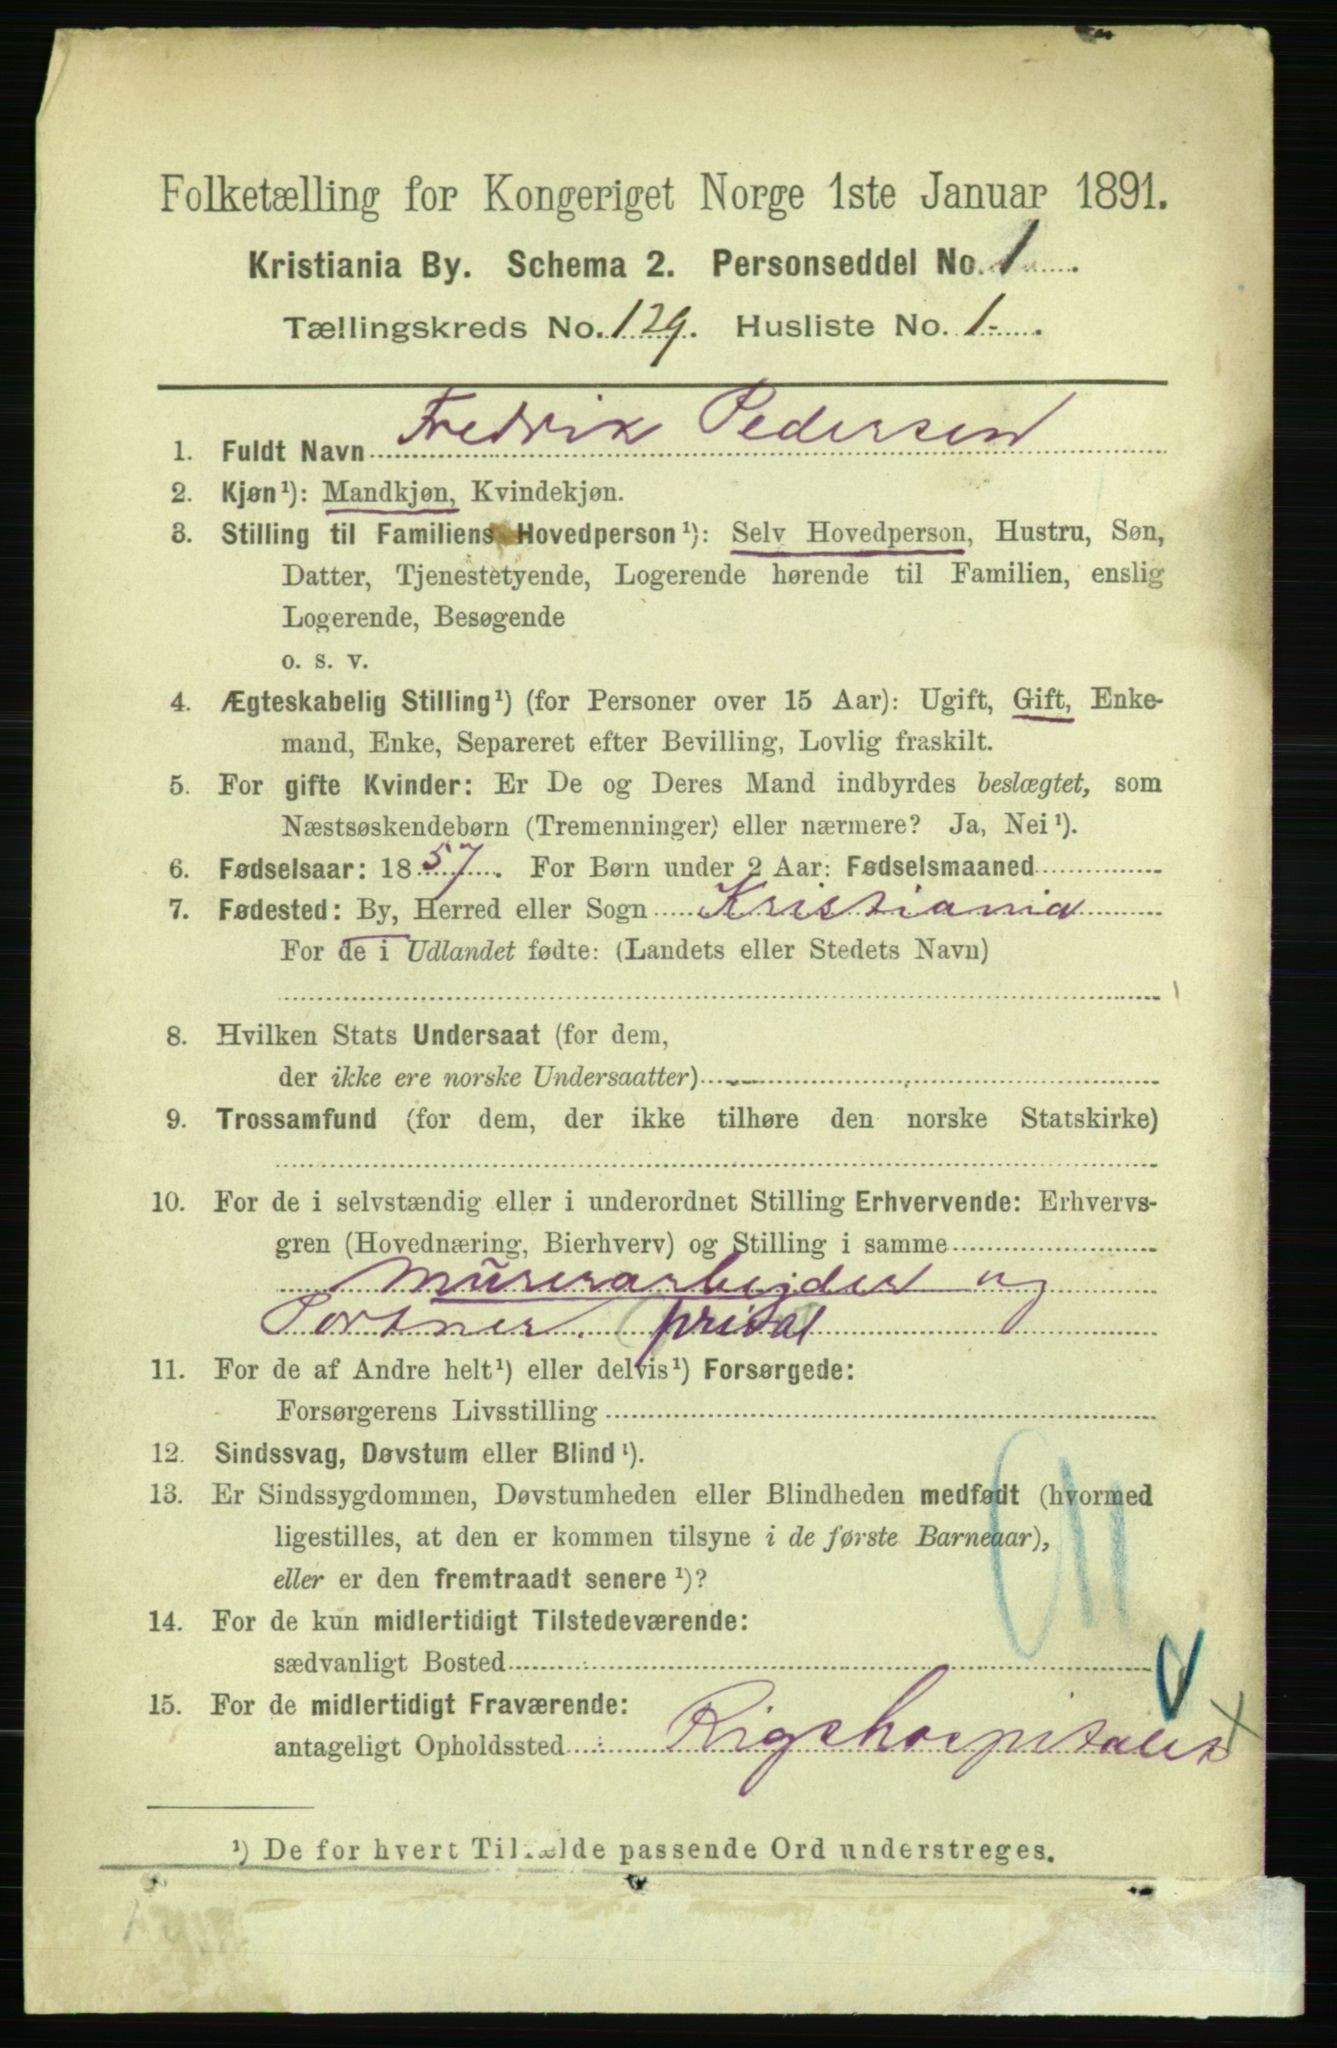 Folketælling for Kongeriget Norge 1ste Januar 1891.
Kristiania By. Schema 2. Personseddel No. 1
Tællingskreds No. 129. Husliste No. 1
1. Fuldt Navn Fredrik Pedersen
2. Kjøn¹): Mandkjøn, Kvindekjøn.
3. Stilling til Familiens Hovedperson¹): Selv Hovedperson, Hustru, Søn,
Datter, Tjenestetyende, Logerende hørende til Familien, enslig
Logerende, Besøgende
o. s. v.
4. Ægteskabelig Stilling¹) (for Personer over 15 Aar): Ugift, Gift, Enke-
mand, Enke, Separeret efter Bevilling, Lovlig fraskilt.
5. For gifte Kvinder: Er De og Deres Mand indbyrdes beslægtet, som
Næstsøskendebørn (Tremenninger) eller nærmere? Ja, Nei¹).
6. Fødselsaar: 1857. For Børn under 2 Aar: Fødselsmaaned
7. Fødested: By, Herred eller Sogn Kristiania
For de i Udlandet fødte: (Landets eller Stedets Navn)
8. Hvilken Stats Undersaat (for dem,
der ikke ere norske Undersaatter)
9. Trossamfund (for dem, der ikke tilhøre den norske Statskirke)
10. For de i selvstændig eller i underordnet Stilling Erhvervende: Erhvervs-
gren (Hovednæring, Bierhverv) og Stilling i samme
Murerarbejder og
Portner. privat
11. For de af Andre helt¹) eller delvis¹) Forsørgede:
Forsørgerens Livsstilling
12. Sindssvag, Døvstum eller Blind¹).
13. Er Sindssygdommen, Døvstumheden eller Blindheden medfødt (hvormed
ligestilles, at den er kommen tilsyne i de første Barneaar),
eller er den fremtraadt senere¹)?
14. For de kun midlertidigt Tilstedeværende:
sædvanligt Bosted
15. For de midlertidigt Fraværende:
antageligt Opholdssted Rigshospitalet
¹) De for hvert Tilfælde passende Ord understreges.